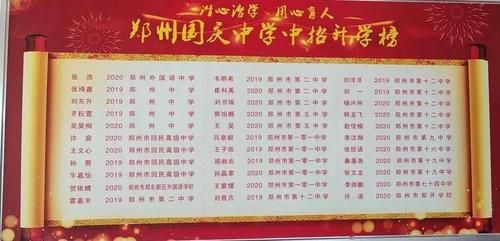 潜心治学 用心育人
郑州国庆中学中招升学榜
张浩 2020 郑州外国语中学 韦明希 2019 郑州市第二中学 刘洋洋 2020 郑州市第十二中学
张琦鑫 2019 郑州中学 崔科禹 2020 郑州市第二中学 刘一 2019 郑州市第十二中学
刘东升 2019 郑州中学 刘书瑞 2020 郑州市第二中学 杨兴州 2020 郑州市第十二中学
齐耘萱 2020 郑州中学 郭怡娜 2020 郑州市第五中学 韩龙飞 2020 郑州市第十二中学
吴昊桐 2020 郑州中学 王昊 2020 郑州市第五中学 赵佳楠 2020 郑州市第十二中学
许宾 2020 郑州市回民高级中学 吕鼎毅 2019 郑州市第一〇一中学 李汶翔 2020 郑州市第九中学
王文心 2020 郑州市回民高级中学 王子烁 2019 郑州市第一〇一中学 张欣语 2019 郑州市第六十中学
孙茜 2019 郑州市回民高级中学 周树兆 2019 郑州市第一〇一中学 秦基尧 2019 郑州市第十一中学
牛嘉怡 2019 郑州市回民高级中学 孙嬴家 2020 郑州市第一〇一中学 张文龙 2020 郑州市第十九中学
贺依婧 2020 郑州市郑东新区外国语学校 王萱熠 2020 郑州市第一〇一中学 李帅鹏 2020 郑州市第七十四中学
霍嘉丰 2019 郑州市第二中学 刘晋凡 2019 郑州市第十二中学 许诺 2020 郑州市郑开学校